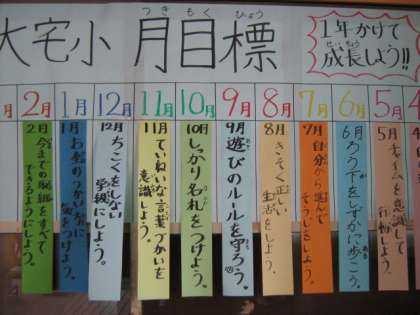 つき もく ひょう
大宅小 月目標
1年かけて
せいちょう
成長しよう!!
月
2月
1月
12月
11月
10月
9月
8月
7月
6月
5月
2月
今までの取組をすべて
できるようにしよう。
1月
お金のつかい方に
気をつけよう。
12月
ちこくをしない
学級にしよう。
11月
ていねいな言葉づかいを
意識しよう。
10月
しっかり名札をつけよう。
9月
遊びのルールを守ろう。
8月
きそく正しい
生活をしよう。
7月
自分から進んで
そうじしよう。
6月
ろう下をしずかに歩こう。
5月
チャイムを意識して
行動しよう。